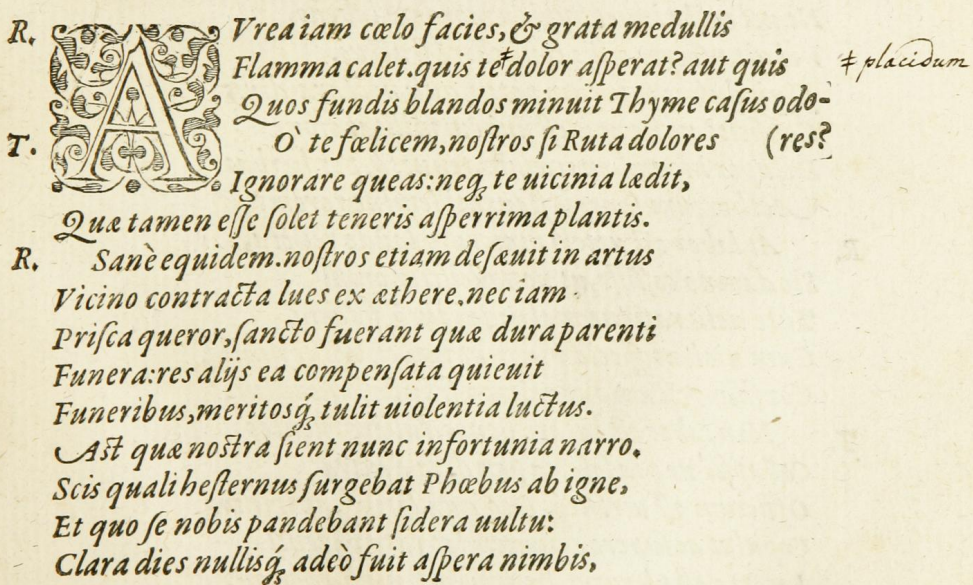 R. AVrea iam cœlo facies, & grata medullis
Flamma calet. quis te ǂ dolor asperat? aut quis ǂ placidum
Quos fundis blandos minuit Thyme casus odo-
T. Ò te fœlicem, nostros si Ruta dolores (res?
Ignorare queas: neq; te uicinia lædit,
Quæ tamen esse solet teneris asperrima plantis.
R. Sanè equidem. nostros etiam desæuit in artus
Vicino contracta lues ex æthere, nec iam
Prisca queror, sancto fuerant quæ dura parenti
Funera: res alijs ea compensata quieuit
Funeribus, meritosq́; tulit uiolentia luctus.
Ast quæ nostra sient nunc infortunia narro.
Scis quali hesternus surgebat Phœbus ab igne,
Et quo se nobis pandebant sidera uultu:
Clara dies nullisq́; adeò fuit aspera nimbis,